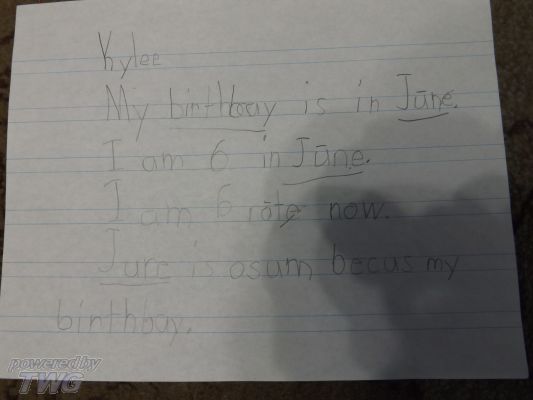 Kylee
My birthbay is in Jūne.
I am 6 in Jūne.
I am 6 rōte now.
June is osum becus my
birthbay.
powered by
TWG